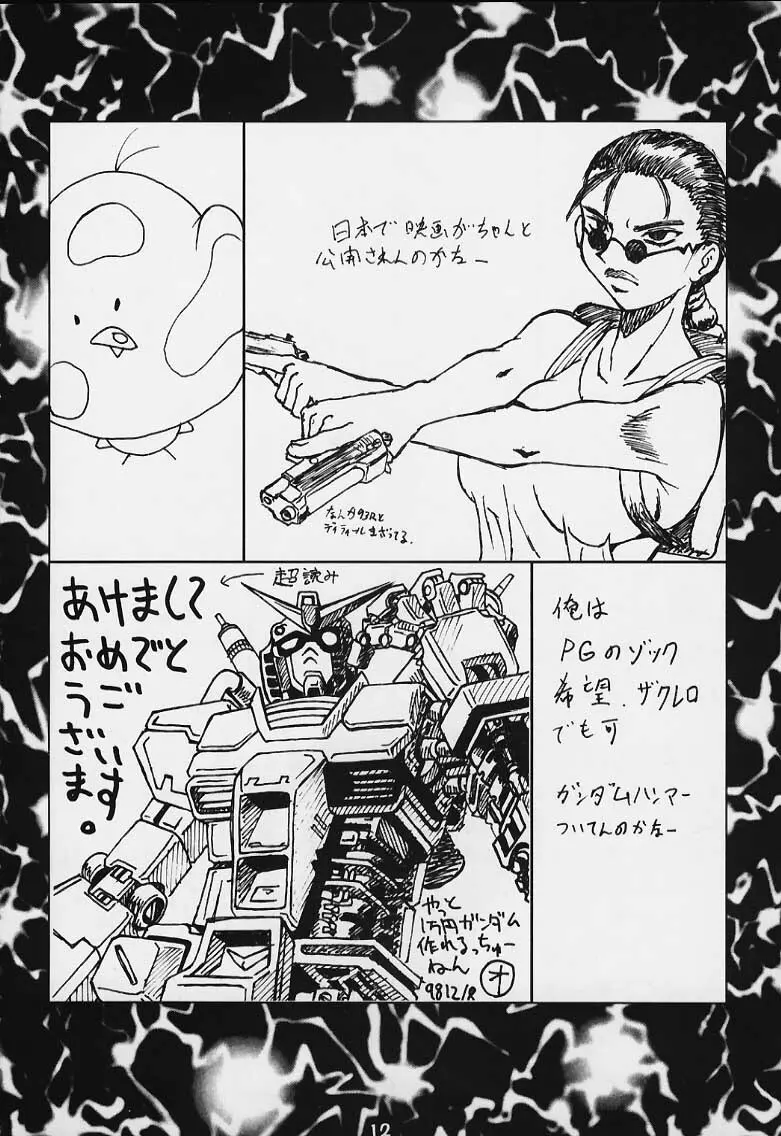 日本で映画がちゃんと
公開されんのかなー
なんか93Rと
ディティールまざってる.
超読み
あけまして
おめでと
うござ
います。
俺は
PGのゾック
希望.ザクレロ
でも可
ガンダムハンマー
ついてんのかなー
やっと
1万円ガンダム
作れるっちゅー
ねん
オ
9812/R
12